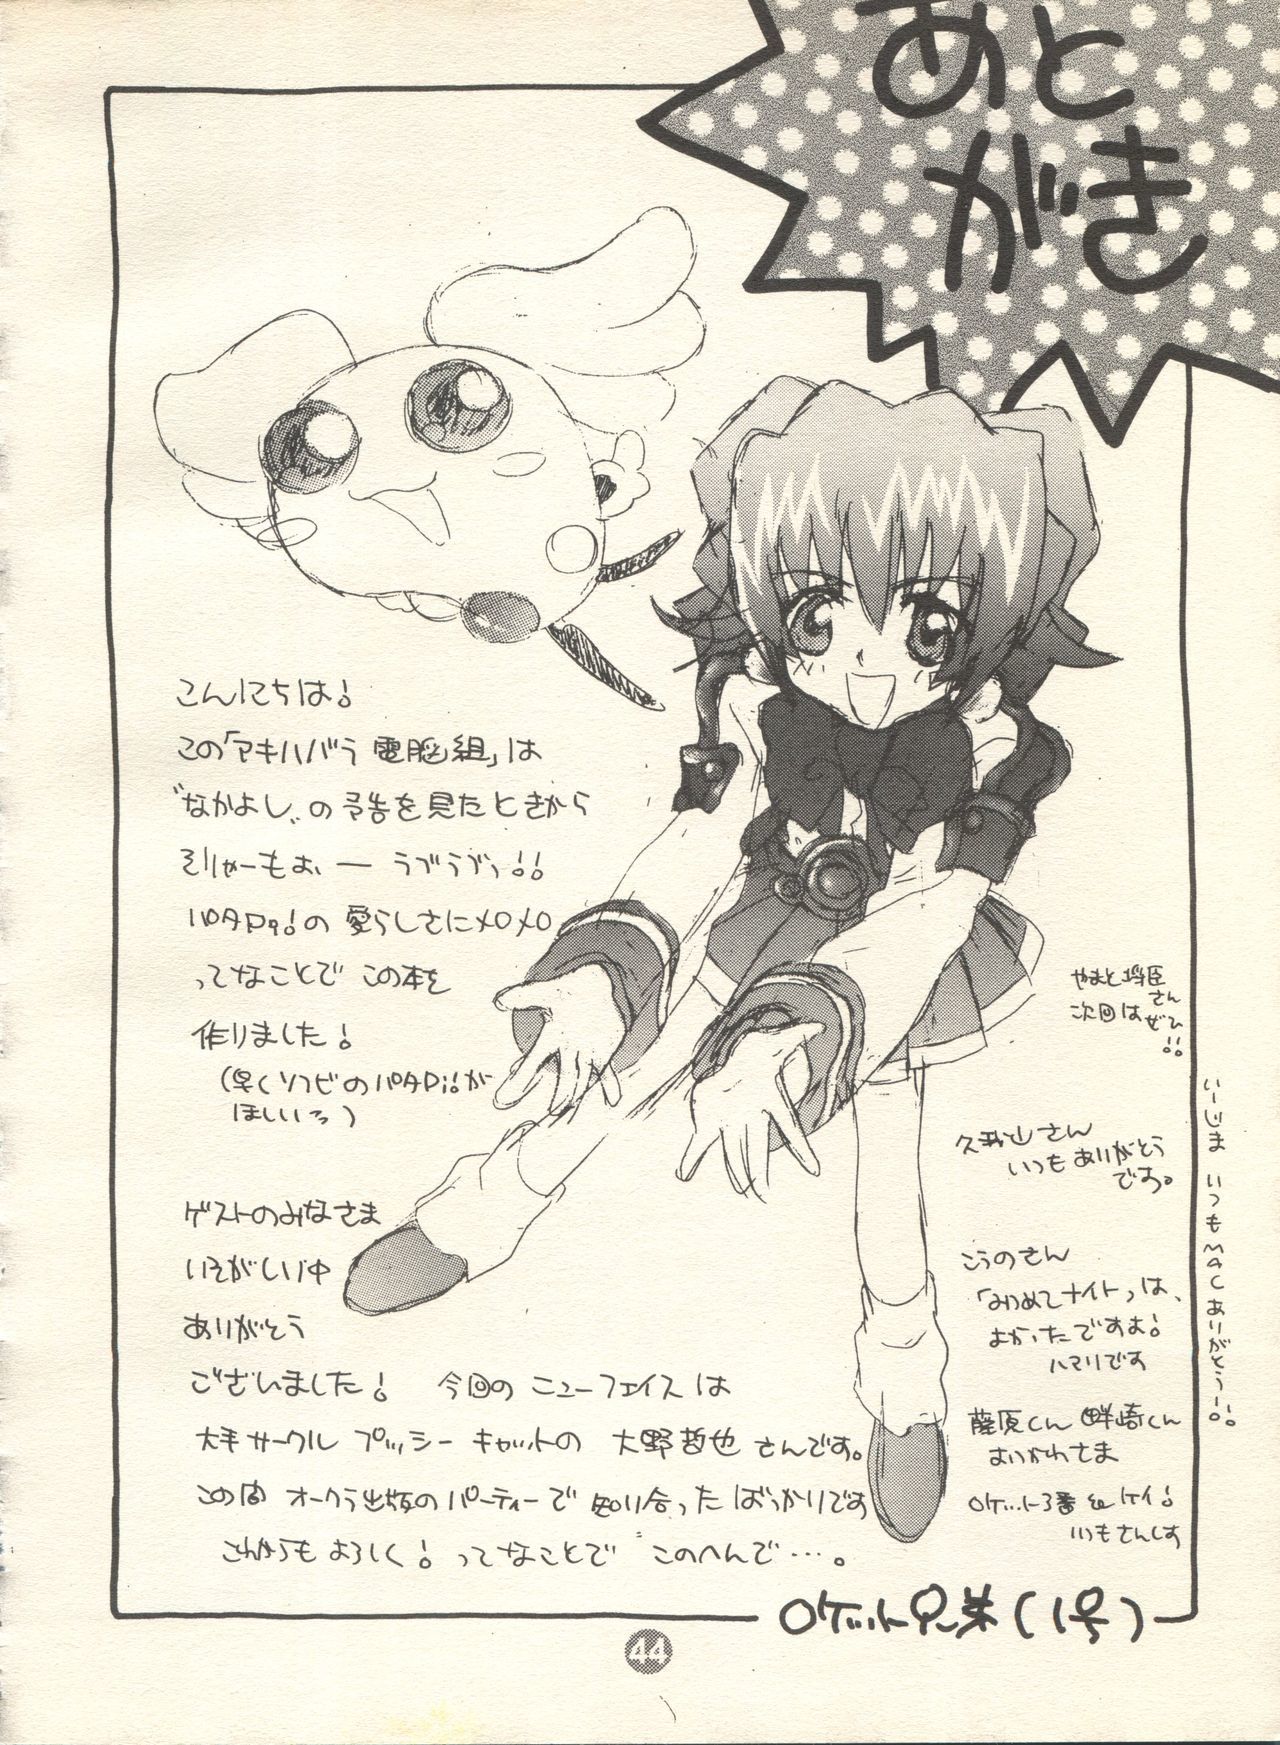 あと
がき
こんにちは!
この「アキハバラ 電脳組」は
"なかよし"の予告を見たときから
そりゃーもぉ、ー らぶらぶっ!!
パタPi!の 愛らしさにメロメロ
ってなことで この本を
作りました!
(早くソフビのパタPi!が
ほしいっ)
ゲストのみなさま
いそがしい中
ありがとう
ございました! 今回の ニューフェイスは
大手サークル プッシー キャットの 大野哲也 さんです。
この間 オークラ出版のパーティーで 知り合ったばっかりです
これからも よろしく! ってなことで このへんで…。
やまと将臣さん
次回はぜひ!!
久我山さん
いつもありがとう
です。
こうのさん
「みつめてナイト」は、
よかったですよ!
ハマリです
藤原くん 畔崎くん
おいかわさま
ロケット3番 ケイ!
いーじま いつもMACありがとうー!!
ロケット兄弟(1号)
44